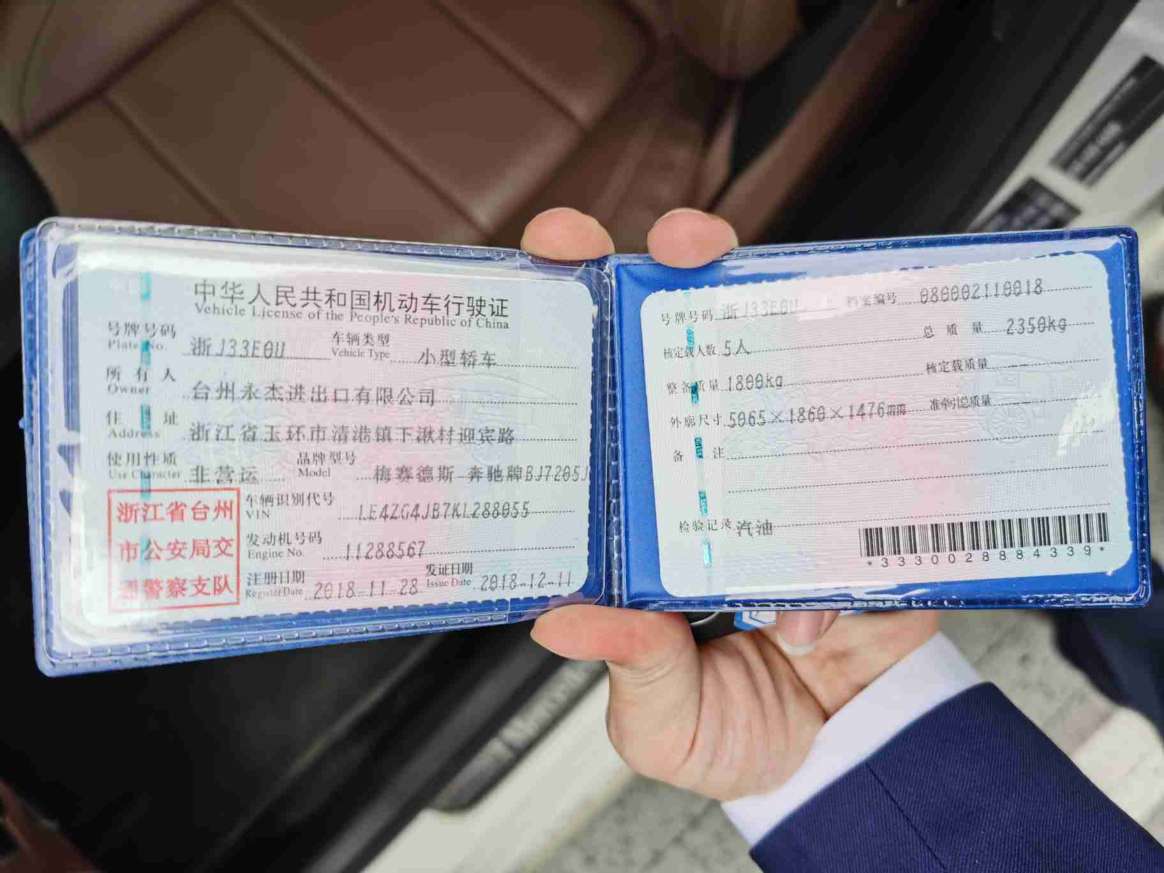 中华人民共和国机动车行驶证
Vehicle License of the People's Republic of China
号牌号码 浙J33E0U 车辆类型 小型轿车
Plate No. Vehicle Type
所有人 台州永杰进出口有限公司
Owner
住址 浙江省玉环市清港镇下湫村迎宾路
Address
使用性质 非营运 品牌型号 梅赛德斯-奔驰牌BJ7205J
Use Character Model
浙江省台州
市公安局交
通警察支队
车辆识别代号 LE4ZG4JB7KL288055
VIN
发动机号码 11288567
Engine No.
注册日期 2018-11-28 发证日期 2018-12-11
Register Date Issue Date
号牌号码 浙J33E0U 档案编号 080002110018
核定载人数 5人 总质量 2350kg
整备质量 1800kg 核定载质量 --
外廓尺寸 5065×1860×1476mm 准牵引总质量 --
备注
检验记录 汽油
*3330028884339*